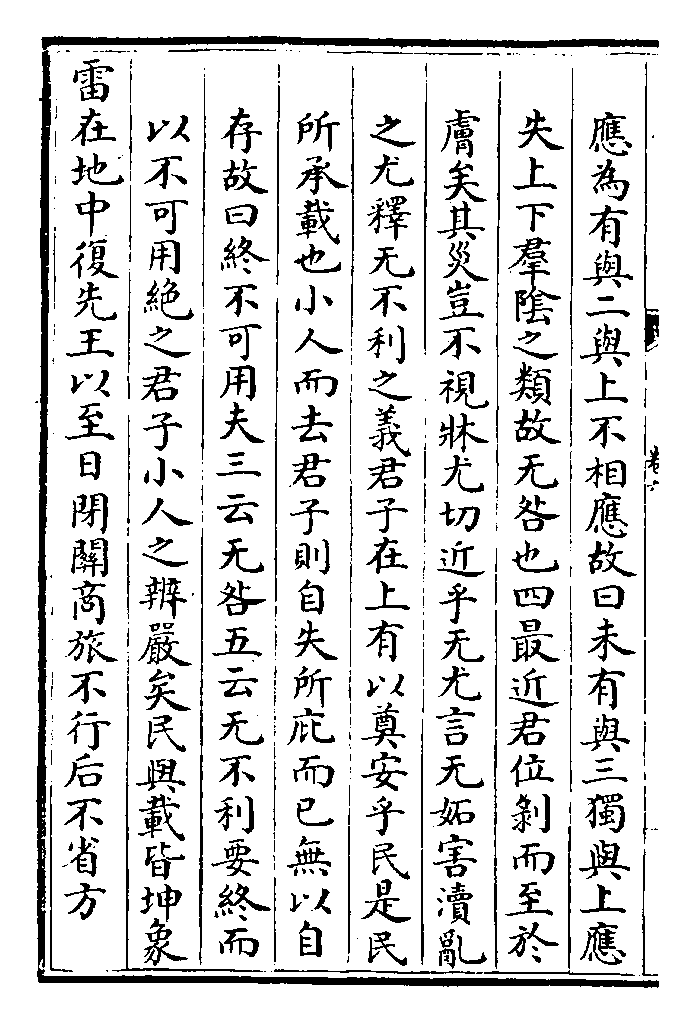 應為有與二與上不相應故曰未有與三獨與上應
失上下羣陰之類故无咎也四最近君位剝而至於
膚矣其災豈不視牀尤切近乎无尤言无妬害瀆亂
之尤釋无不利之義君子在上有以奠安乎民是民
所承載也小人而去君子則自失所庇而已無以自
存故曰終不可用夫三云无咎五云无不利要終而
以不可用絶之君子小人之辨嚴矣民與載皆坤象
雷在地中復先王以至日閉關商旅不行后不省方